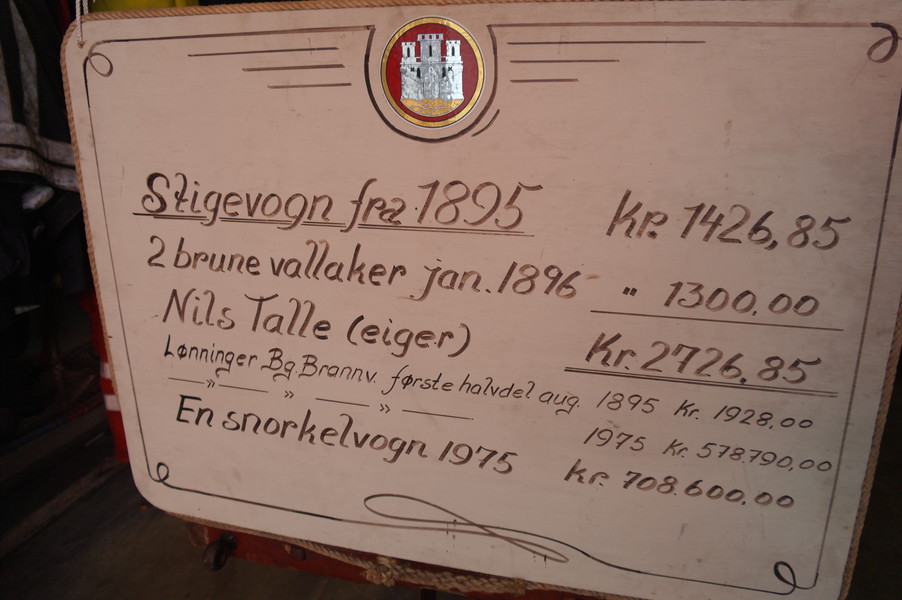 Stigevogn fra 1895 Kr. 1426,85
2 brune vallaker jan. 1896 " 1300,00
Nils Talle (eiger) Kr. 2726,85
Lønninger Bg. Brannv. første halvdel aug. 1895 Kr. 1928,00
— » — » — » — 1975 Kr. 578.790,00
En snorkelvogn 1975 Kr. 708.600,00